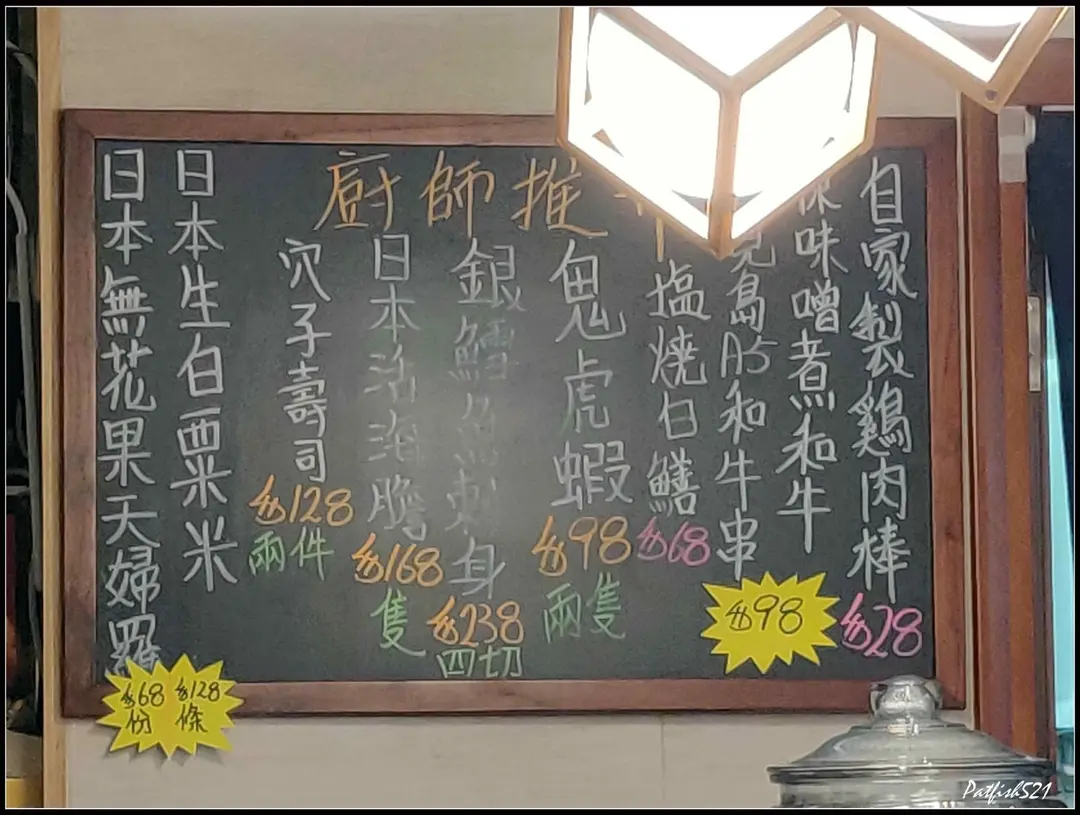 廚師推
自家製鷄肉棒
$28
味噌煮和牛
兒島A5和牛串
$98
塩燒白鱔
$68
鬼虎蝦
$98
兩隻
銀鱈魚刺身
$238
四切
日本活海膽
$168
隻
穴子壽司
$128
兩件
日本生白粟米
$128
條
日本無花果天婦羅
$68
份
Patfish521